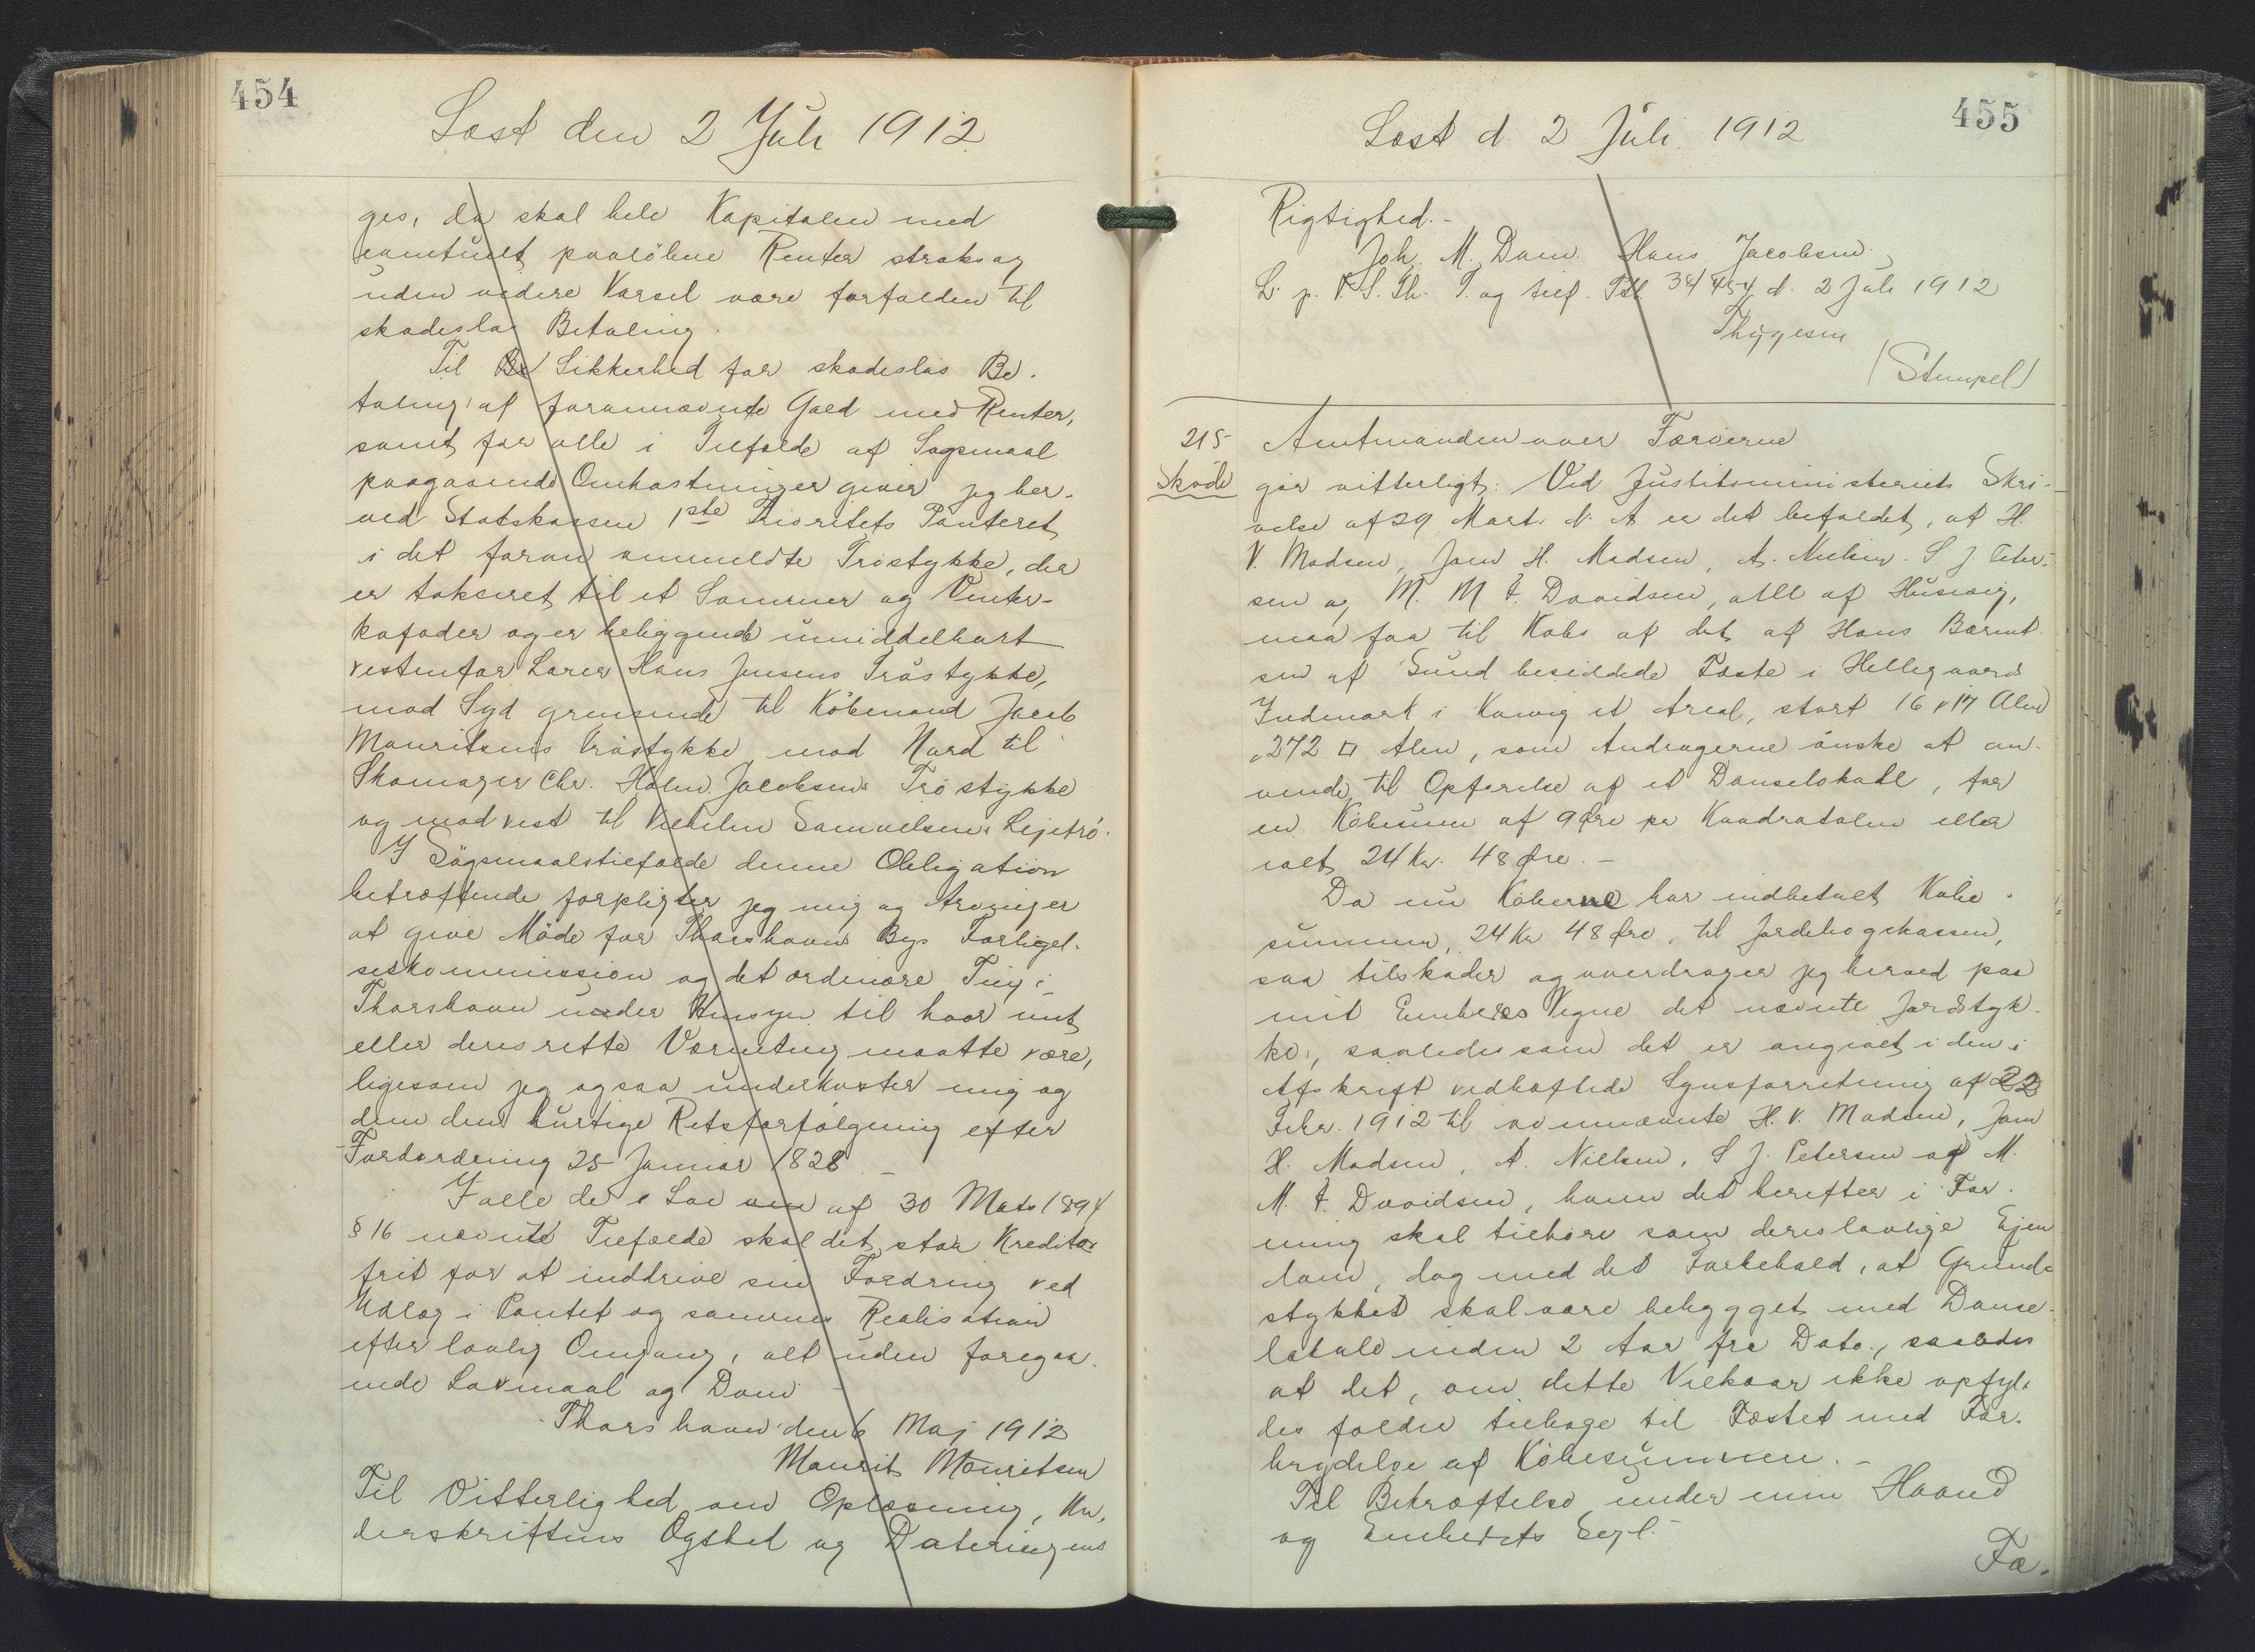 454
Læst den 2 Juli 1912
ges, da skal hele Kapitalen med
eventuelt paaløbne Renter straks og
uden videre Varsel være forfalden til
skadesløs Betaling.
Til Be Sikkerhed for skadesløs Be-
taling af forannævnte Gæld med Renter,
samt for alle i Tilfælde af Søgsmaal
paagaaende Omkostninger giver jeg her-
ved Statskassen 1ste Prioritets Panteret
i det foran ommeldte Trøstykke, der
er takseret til et Sommer og Vinter-
kofoder og er beliggende umiddelbart
vestenfor Lærer Hans Jensens Trøstykke,
mod Syd grensende til Købmand Jacob
Mouritsens trøstykke, mod Nord til
Skomager Chr. Holm Jacobsens Trøstykke
og mod vest til Vilhelm Samuelsens Lejetrø.
I Søgsmaalstilfælde denne Obligation
betræffende forpligter jeg mig og Arvinger
at give Møde for Thorshavns Bys Forligel-
seskommission og det ordinære Ting i
Thorshavn uden Hensyn til hvor mit
eller deres rette Værneting maatte være,
ligesom jeg ogsaa underkaster mig og
dem den hurtige Retsforfølgning efter
Forordning 25 Januar 1828.-
I alle de i Lov om af 30 Mats 1894
§ 16 nævnte Tilfælde skal det staa Kreditor
frit for at inddrive sin Fordring ved
Udlæg i Pantet og sammes Realisation
efter lovlig Omgang, alt uden foregaa-
ende Lovmaal og Dom -
Thorshavn den 6 Maj 1912
Maurits Mouritsen
Til Vitterlighed om Oplæsning, Un-
derskriftens Ægthed og Dateringens
455
Læst d. 2 Juli 1912
Rigtighed.-
Joh. M. Dam. Hans Jacobsen.
L. p. V. S. Th. T. og tilf. Tbl. 34 454 d. 2 Juli 1912
Thygesen
(Stempel)
215
Skøde
Amtmanden over Færøerne
gør vitterligt: Ved Justitsministeriets Skri-
velse af 29 Marts d. A er det befaldet, at H.
V. Madsen, Jens H. Madsen, A. Nielsen. S. J. Peter-
sen og M. M F. Davidsen, alle af Husevig,
maa faa til Købs af det af Hans Bærent-
sen af Sund besiddede Fæste i Hellegaards
Indmark i Kaevig et Areal, stort 16 x 17 Alen
= 272 □ Alen, som Andragerne ønske at an-
vende til Opførelse af et Danselokale, for
en Købesum af 9 Øre per Kvadratalen eller
ialt 24 Kr. 48 Øre.-
Da nu Køberne har indbetalt Købe-
summen, 24 Kr 48 Øre, til Jordebogskassen,
saa tilskøder og overdrager jeg herved paa
mit Embedes Vegne det nævnte Jordstyk-
ke, saaledes som det er angivet i den i
Afskrift vedhæftede Synsforretning af 22
Febr. 1912 til ovennævnte H. V. Madsen, Jens
H. Madsen, A. Nielsen, S J. Petersen og M.
M. F. Davidsen, hvem det herefter i For-
ening skal tilhøre som deres lovlige Ejen
dom, dog med det Forbehold, at Grund-
stykket skal være bebygget med Danse-
lokale inden 2 Aar fra Dato, saaledes
at det, om dette Vilkaar ikke opfyl-
des falder tilbage til Fæstet med For-
brydelse af Købesummen.-
Til Bekræftelse under min Haand
og Embedets Segl.-
Fæ-